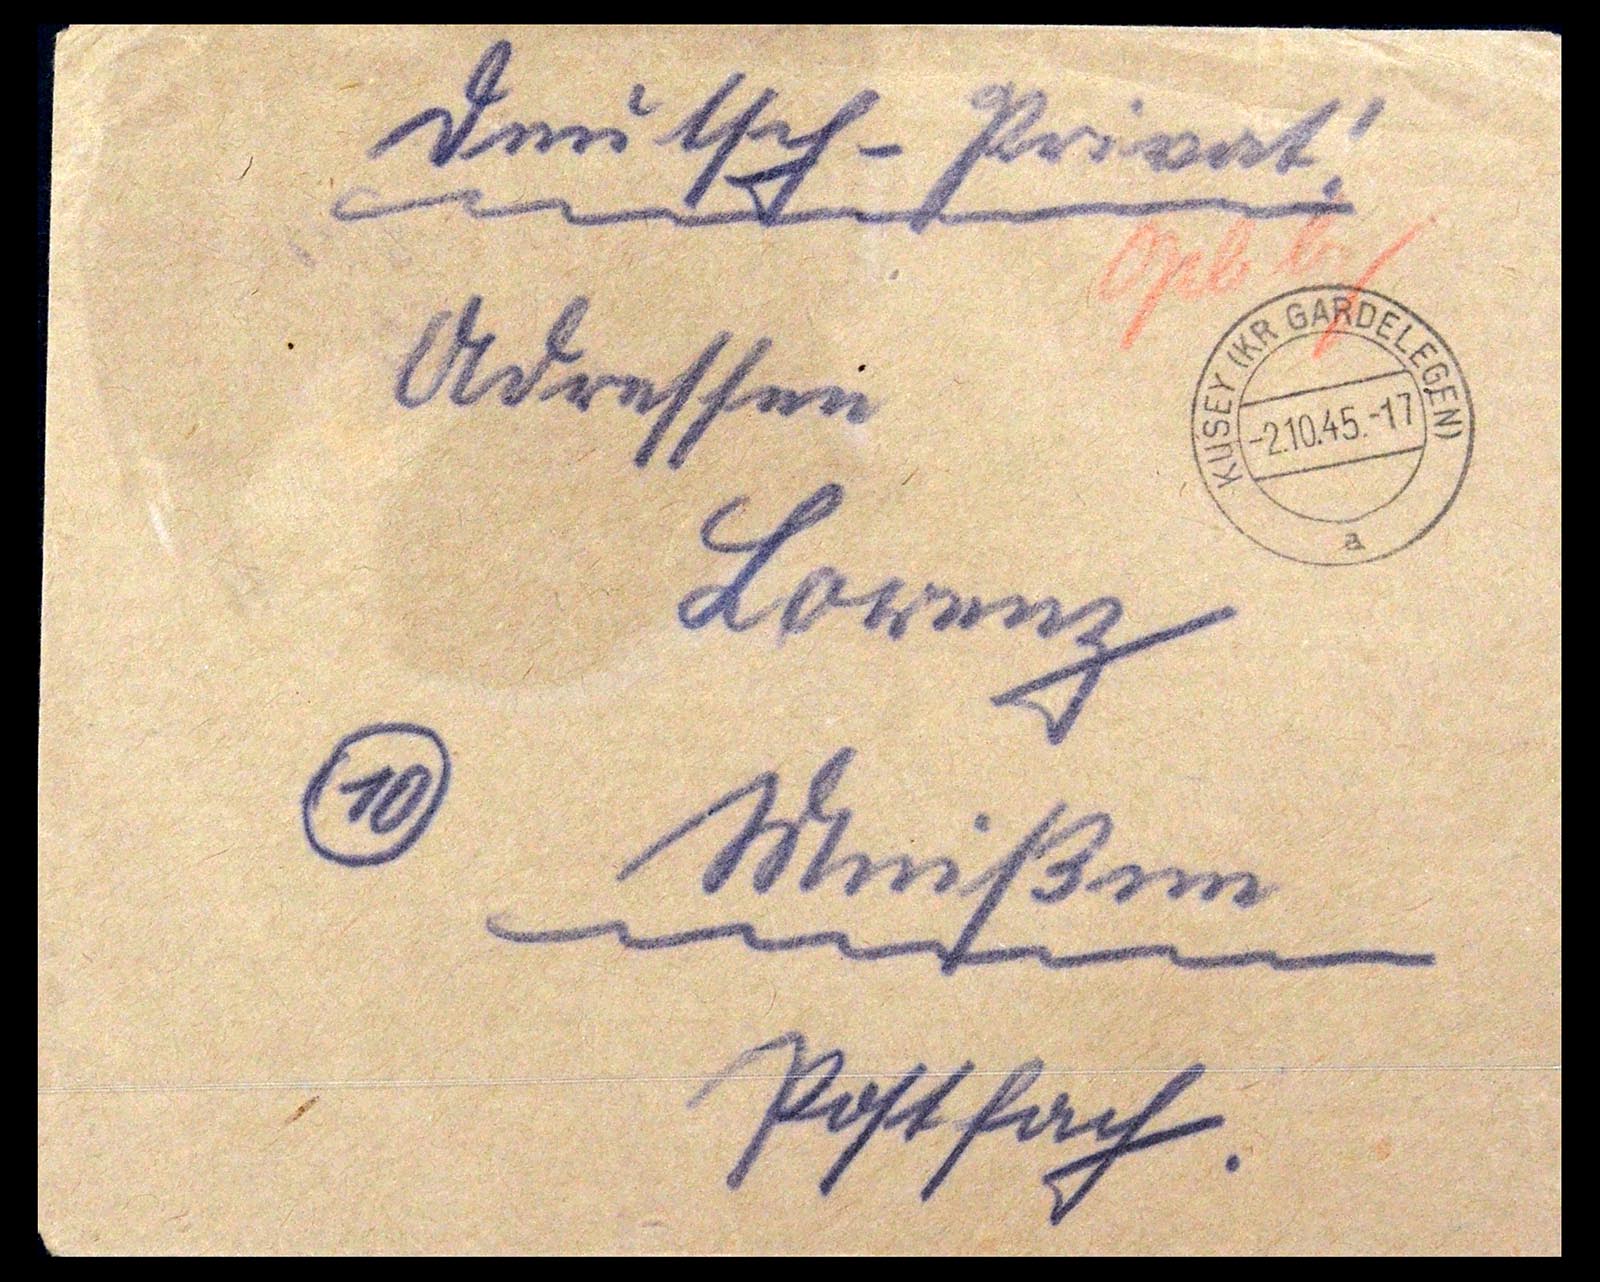 Deutsch - Privat!
KUSEY (KR GARDELEGEN)
-2.10.45.-17
a
Adressen
Lorenz
10
Meißen
Postfach.